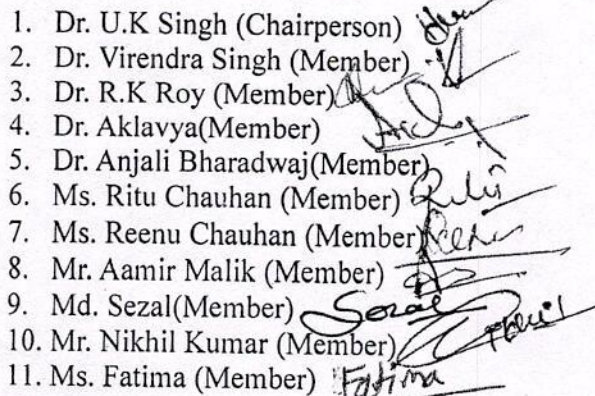 1. Dr. U.K Singh (Chairperson)
2. Dr. Virendra Singh (Member)
3. Dr. R.K Roy (Member)
4. Dr. Aklavya(Member)
5. Dr. Anjali Bharadwaj(Member)
6. Ms. Ritu Chauhan (Member) Ritu
7. Ms. Reenu Chauhan (Member) Reenu
8. Mr. Aamir Malik (Member)
9. Md. Sezal(Member) Sezal
10. Mr. Nikhil Kumar (Member)
11. Ms. Fatima (Member) Fatima